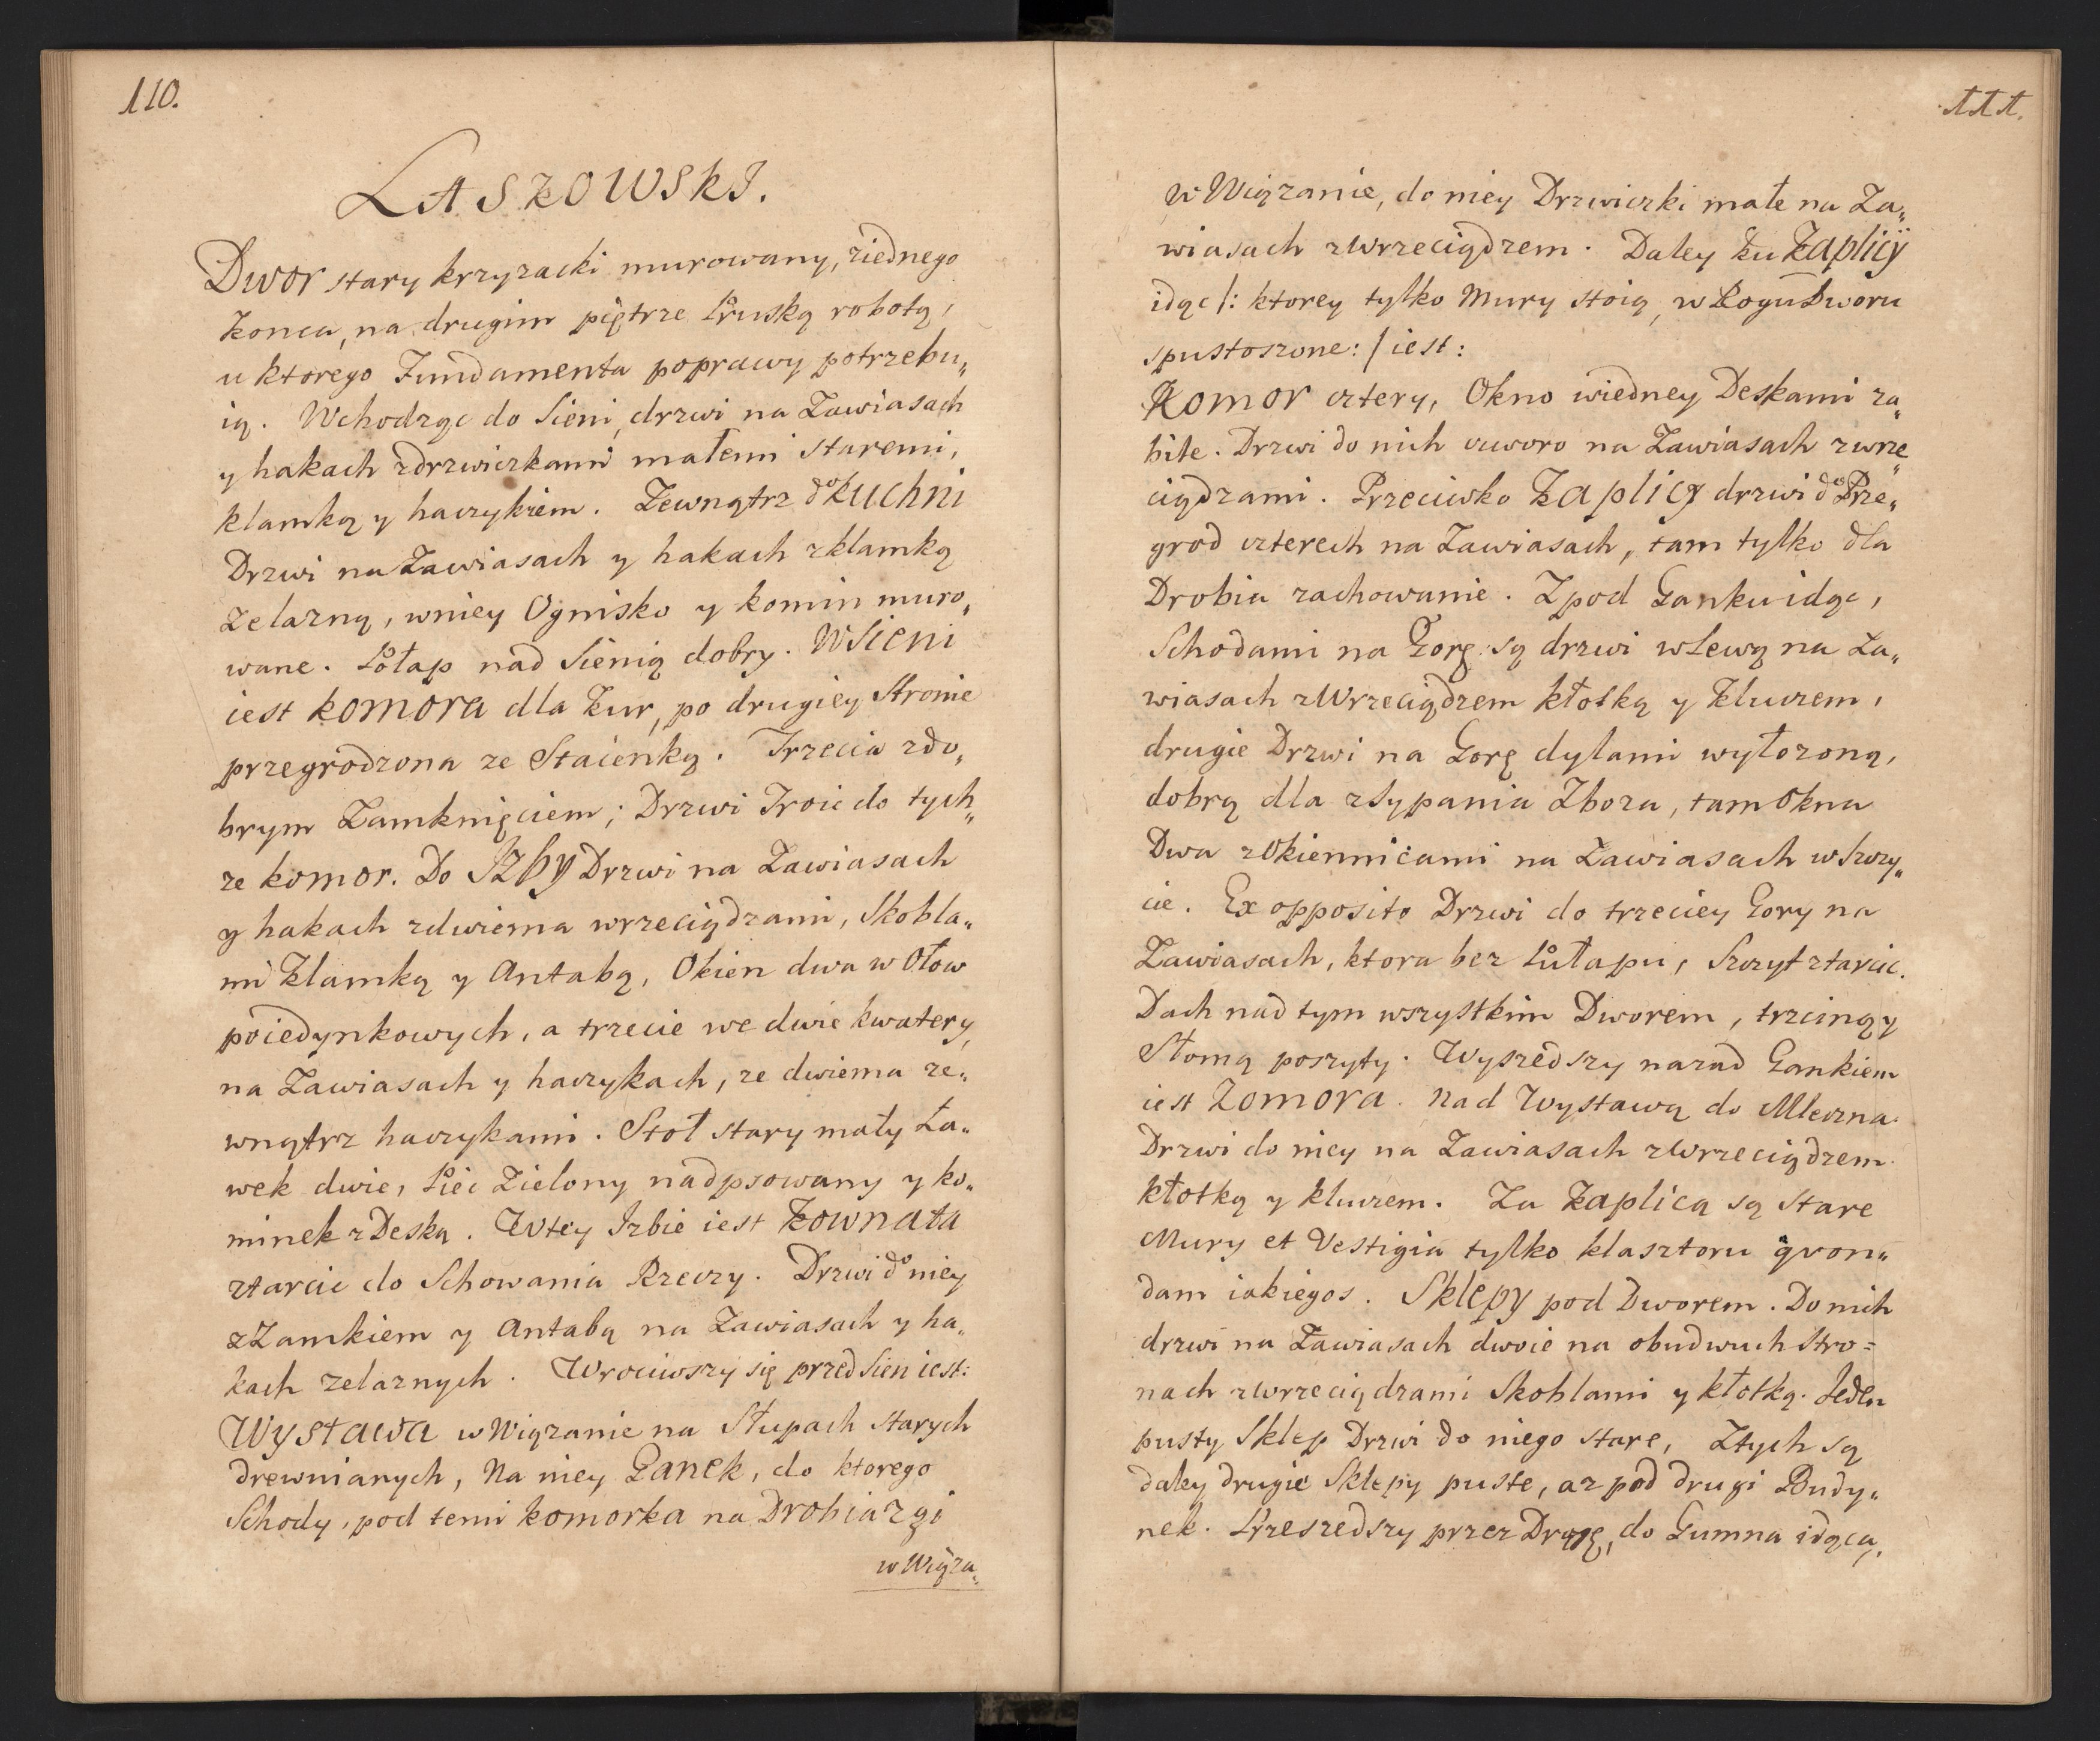 110.
LASZKOWSKI.
Dwor stary krzyzacki murowany, ziednego
konca, na drugim piętrze Pruską robotą,
u ktorego Fundamenta poprawy potrzebu„
ią. Wchodząc do Sieni, drzwi na Zawiasach
y hakach zdrzwiczkami małemi staremi,
klamką y haczykiem. Zewnątrz do kuchni
Drzwi na Zawiasach y hakach zklamką
zelazną, wniey Ognisko y komin muro„
wane. Połap nad Sienią dobry. WSieni
iest komora dla kur, po drugiey Stronie
przegrodzona ze Staienką. Trzecia zdo„
brym Zamknięciem; Drzwi Troie do tych„
ze komor. Do Izby Drzwi na Zawiasach
y hakach zdwiema wrzeciądzami, Skobla„
mi klamką y Antabą, Okien dwa w Ołow
poiedynkowych, a trzecie we dwie kwatery,
na Zawiasach y haczykach, ze dwiema ze„
wnątrz haczykami. Stoł stary mały Ła„
wek dwie, Piec Zielony nadpsowany y ko„
minek z Deską. Wtey Izbie iest Kownata
ztarcic do Schowania Rzeczy. Drzwi do niey
z Zamkiem y Antabą na Zawiasach y ha„
kach zelaznych. Wrociwszy się przed Sien iest:
Wystawa w Wiązanie na Słupach starych
drewnianych, Na niey Ganek, do ktorego
Schody, pod temi komorka na Drobiazgi
w Wiąza„
111.
w Wiązanie, do niey Drzwiczki małe na Za„
wiasach z Wrzeciądzem. Daley ku Kaplicÿ
idąc /: ktorey tylko Mury stoią, w Rogu Dworu
spustoszone: / iest:
Komor cztery, Okno wiedney Deskami za„
bite. Drzwi do nich czworo na Zawiasach zwrze„
ciądzami. Przeciwko Kaplicy drzwi do Prze„
grod czterech na Zawiasach, tam tylko dla
Drobiu zachowanie. Zpod Ganku idąc,
Schodami na Gorę są drzwi wLewą na Za„
wiasach z Wrzeciądzem kłotką y kluczem,
drugie Drzwi na Gorę dylami wyłozoną,
dobrą dla zsypania Zboza, tam Okna
Dwa z Okiennicami na Zawiasach w Szczy„
cie. Ex opposito Drzwi do trzeciey Gory na
Zawiasach, ktora bez Pułapu, Szczyt ztarcic.
Dach nad tym wszystkim Dworem, trzciną y
Słomą poszyty. Wyszedszy nazad Gankiem
iest Komora nad Wystawą do Mleczna
Drzwi do niey na Zawiasach z Wrzeciądzem
kłotką y kluczem. Za Kaplicą są stare
Mury et Vestigia tylko klasztoru qvon„
dam iakiegos. Sklepy pod Dworem. Do nich
drzwi na Zawiasach dwoie na obudwuch stro=
nach zwrzeciądzami Skoblami y kłotką. Jeden
pusty Sklep Drzwi do niego stare, Ztych są
daley drugie Sklepy puste, az pod drugi Budy„
nek. Przeszedszy przez Drogę, do Gumna idącą,